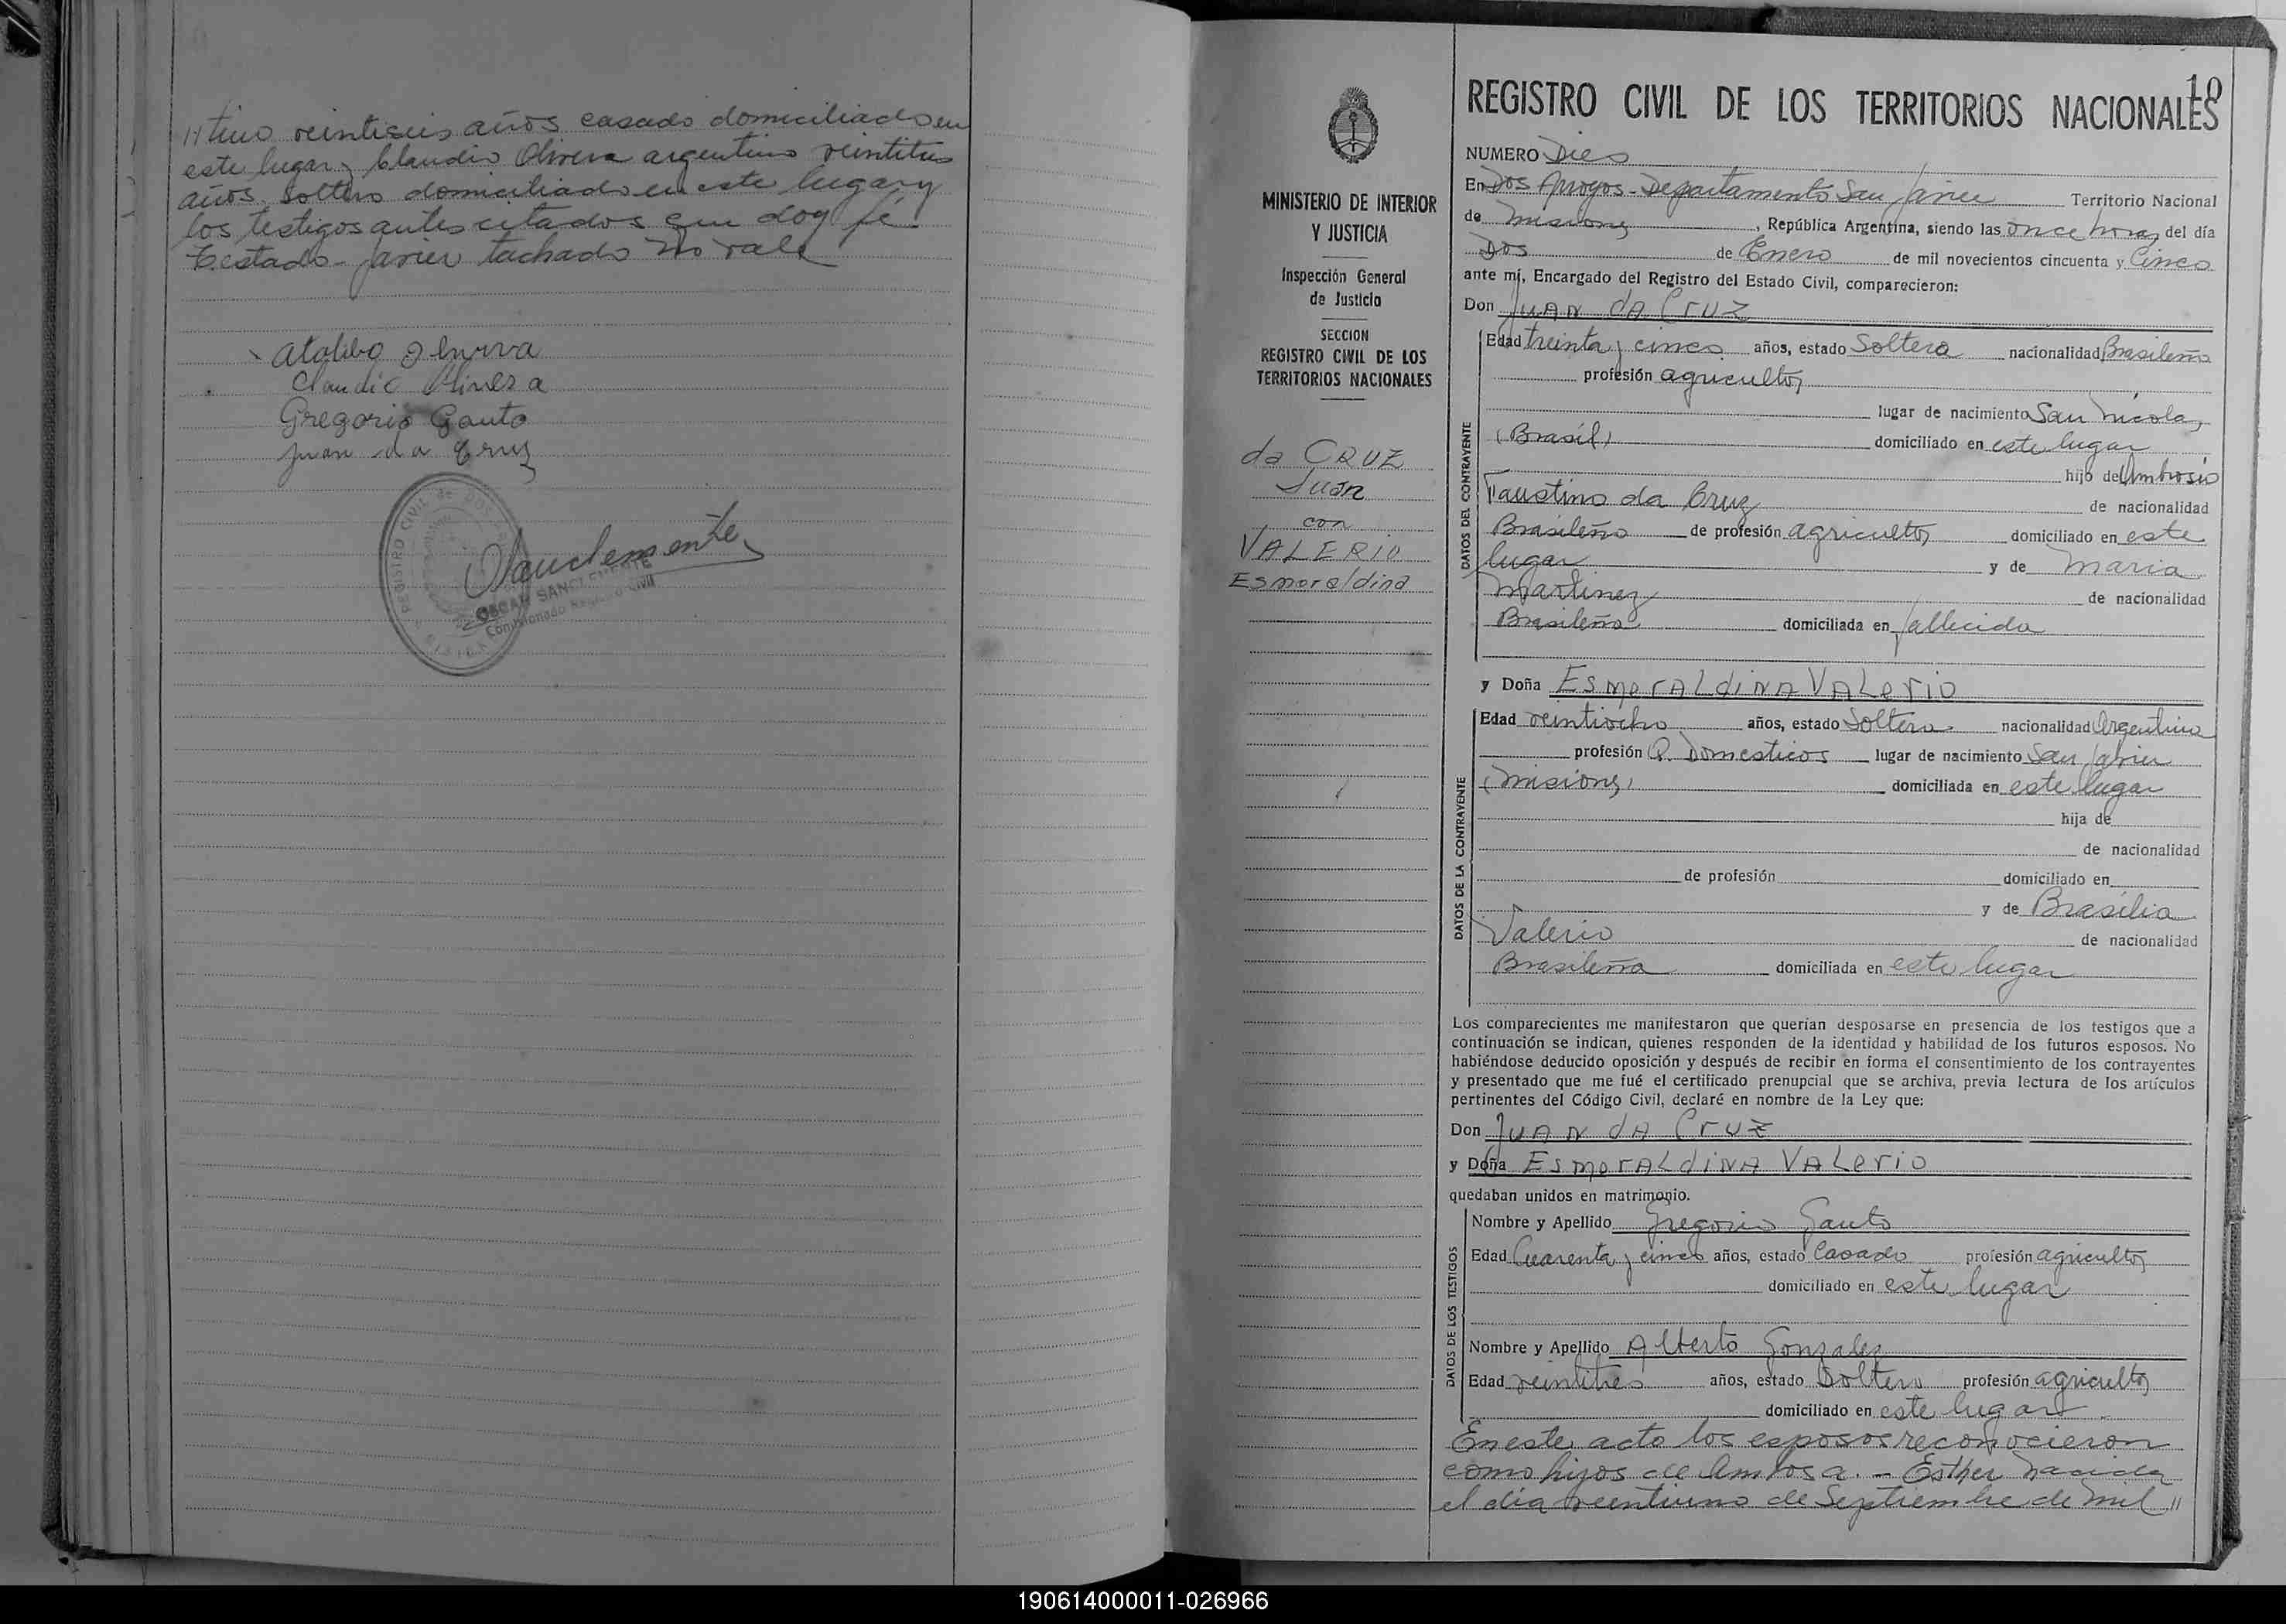 // tino veintiseis años casado domiciliado en
este lugar y Claudio Olivera argentino veintitres
años soltero domiciliado en este lugar y
los testigos antes citados que doy fé
Testado - Javier tachado no vale
Claudio Olivera
Gregorio Gauto
Juan da Cruz
REGISTRO CIVIL de DOS
Sanclemente
OSCAR SANCLEMENTE
Comisionado Registro Civil
10
MINISTERIO DE INTERIOR
Y JUSTICIA
Inspección General
de Justicia
SECCION
REGISTRO CIVIL DE LOS
TERRITORIOS NACIONALES
da CRUZ
Juan
con
VALERIO
Esmeraldina
REGISTRO CIVIL DE LOS TERRITORIOS NACIONALES
NUMERO Dies
En Dos Arroyos - Departamento San Javier Territorio Nacional
de Misiones, República Argentina, siendo las once horas del día
Dos de Enero de mil novecientos cincuenta y Cinco
ante mí, Encargado del Registro del Estado Civil, comparecieron:
Don JUAN dA CrUZ
DATOS DEL CONTRAYENTE
Edad treinta y cinco años, estado Soltero nacionalidad Brasileño
profesión agricultor
lugar de nacimiento San Nicolas
(Brasil) domiciliado en este lugar
hijo de Ambrosio
Faustino da Cruz de nacionalidad
Brasileño de profesión agricultor domiciliado en este
lugar y de Maria
Martinez de nacionalidad
Brasileña domiciliada en fallecida
y Doña ESmerALdiNA VALerio
DATOS DE LA CONTRAYENTE
Edad veintiocho años, estado Soltera nacionalidad Argentina
profesión Q. Domesticos lugar de nacimiento San Javier
(Misiones) domiciliada en este lugar
hija de
de nacionalidad
de profesión domiciliado en
y de Brasilia
Valerio de nacionalidad
Brasileña domiciliada en este lugar
Los comparecientes me manifestaron que querían desposarse en presencia de los testigos que a
continuación se indican, quienes responden de la identidad y habilidad de los futuros esposos. No
habiéndose deducido oposición y después de recibir en forma el consentimiento de los contrayentes
y presentado que me fué el certificado prenupcial que se archiva, previa lectura de los artículos
pertinentes del Código Civil, declaré en nombre de la Ley que:
Don JUAN dA CrUZ
y Doña ESmerALdiNA VALerio
quedaban unidos en matrimonio.
DATOS DE LOS TESTIGOS
Nombre y Apellido Gregorio Gauto
Edad Cuarenta y cinco años, estado Casado profesión agricultor
domiciliado en este lugar
Nombre y Apellido Alberto Gonzalez
Edad veintitres años, estado Soltero profesión agricultor
domiciliado en este lugar
En este acto los esposos reconocieron
como hijos de Ambos a. - Esther nacida
el dia veintiuno de Septiembre de mil //
190614000011-026966